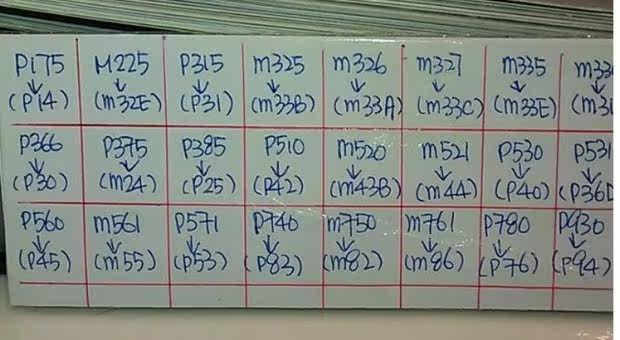 P175 M225 P315 m325 m326 m327 m335
(P14) (m32E) (P31) (m33B) (m33A) (m33C) (m33E)
P366 P375 P385 P510 m520 m521 P530 P531
(P30) (m24) (P25) (P42) (m43B) (m44) (P40)
P560 m561 P571 P740 m750 m761 P780 P930
(P45) (m55) (P53) (P83) (m82) (m86) (P76) (P94)